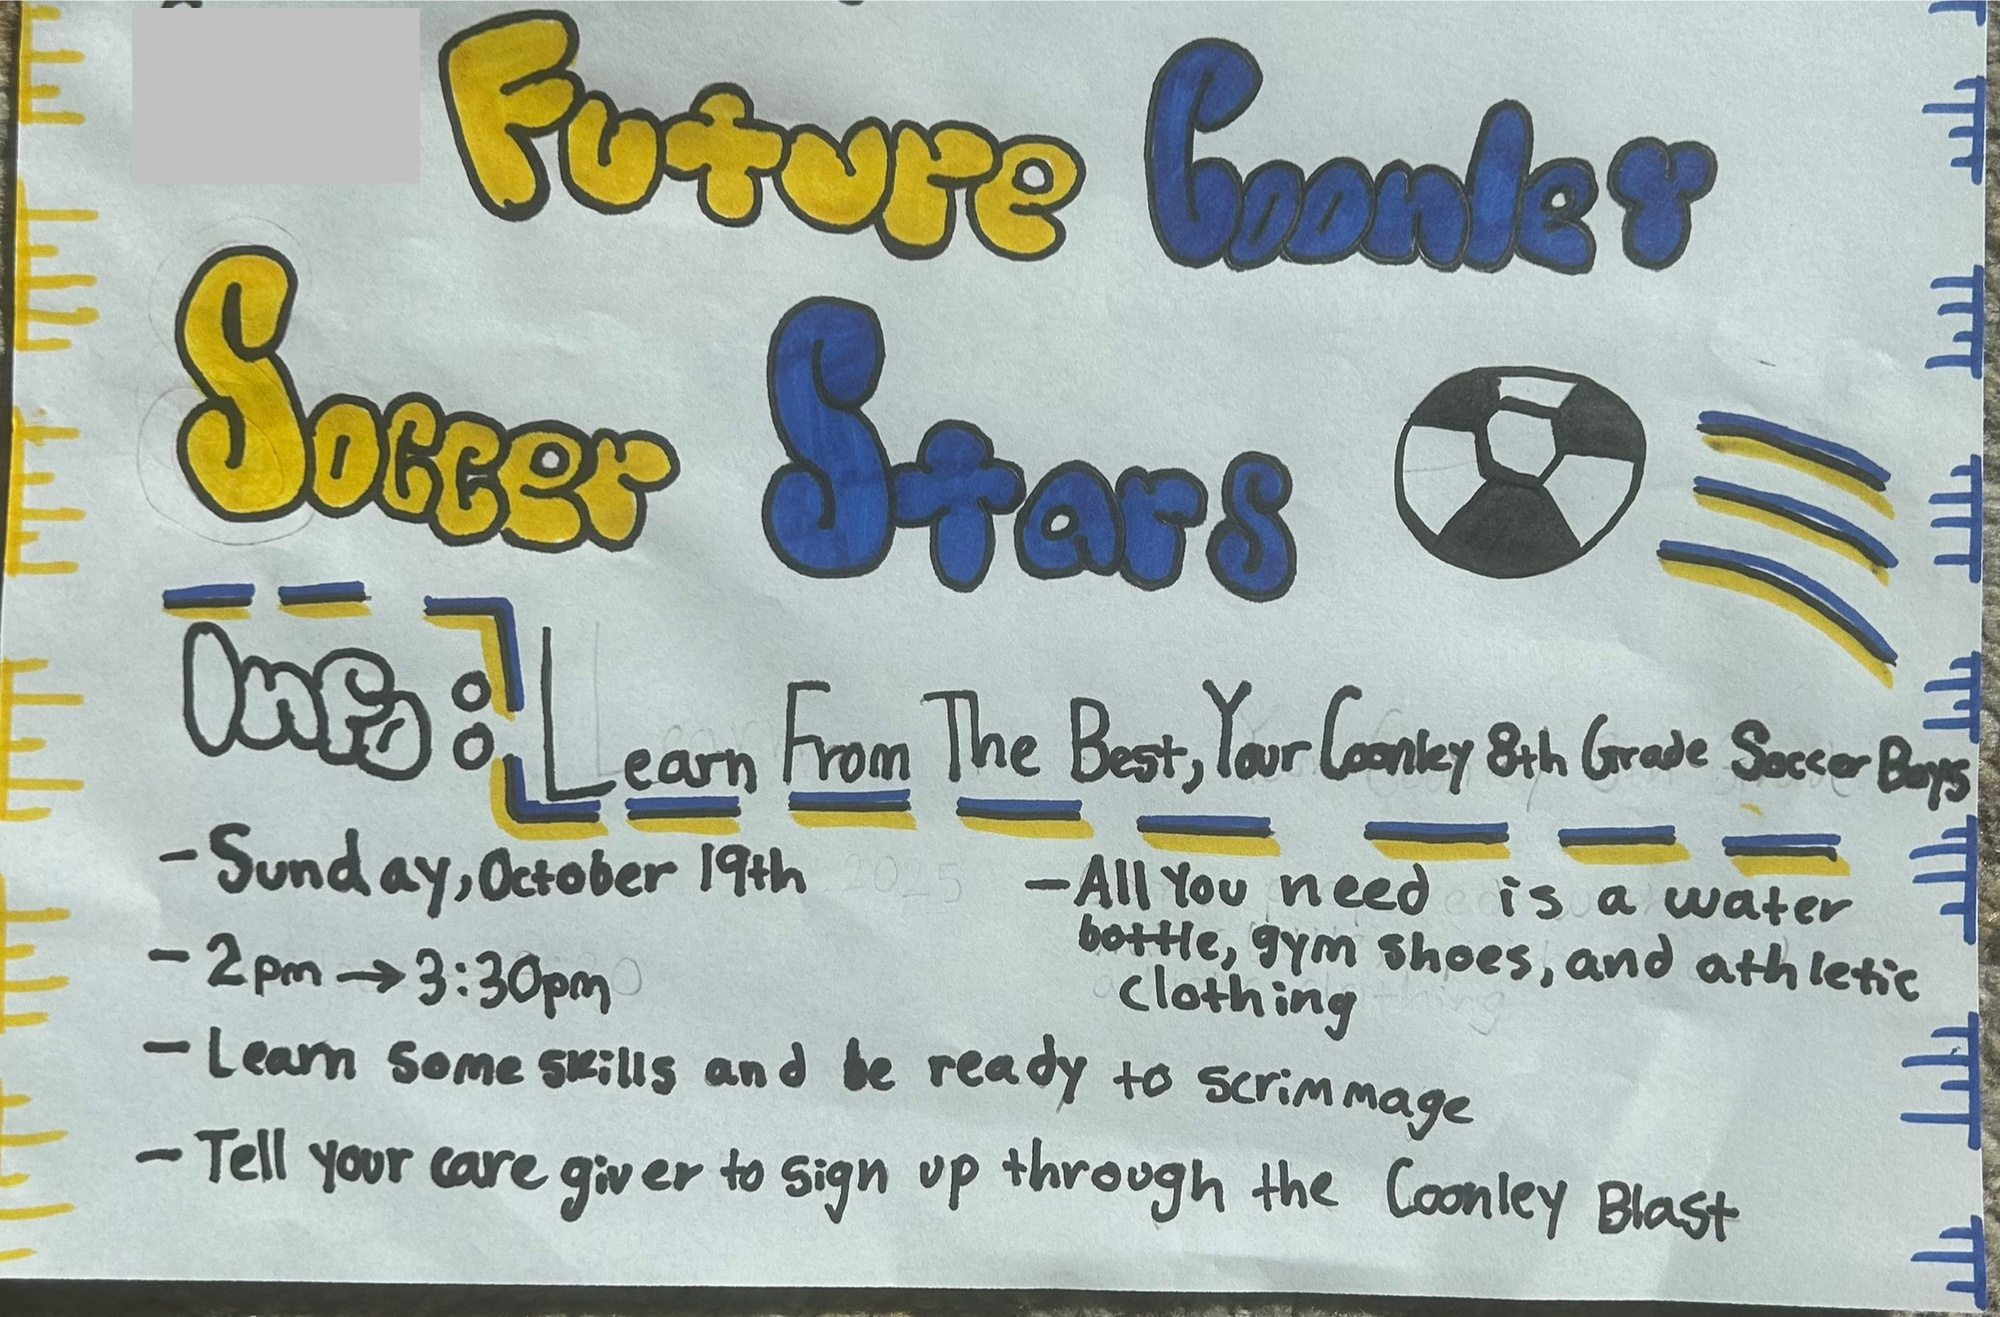 Future Coonley
Soccer Stars
Info: Learn From The Best, Your Coonley 8th Grade Soccer Boys
- Sunday, October 19th 2025
- 2pm → 3:30pm
- Learn some skills and be ready to scrimmage
- Tell your care giver to sign up through the Coonley Blast
- All You need is a water
bottle, gym shoes, and athletic
clothing